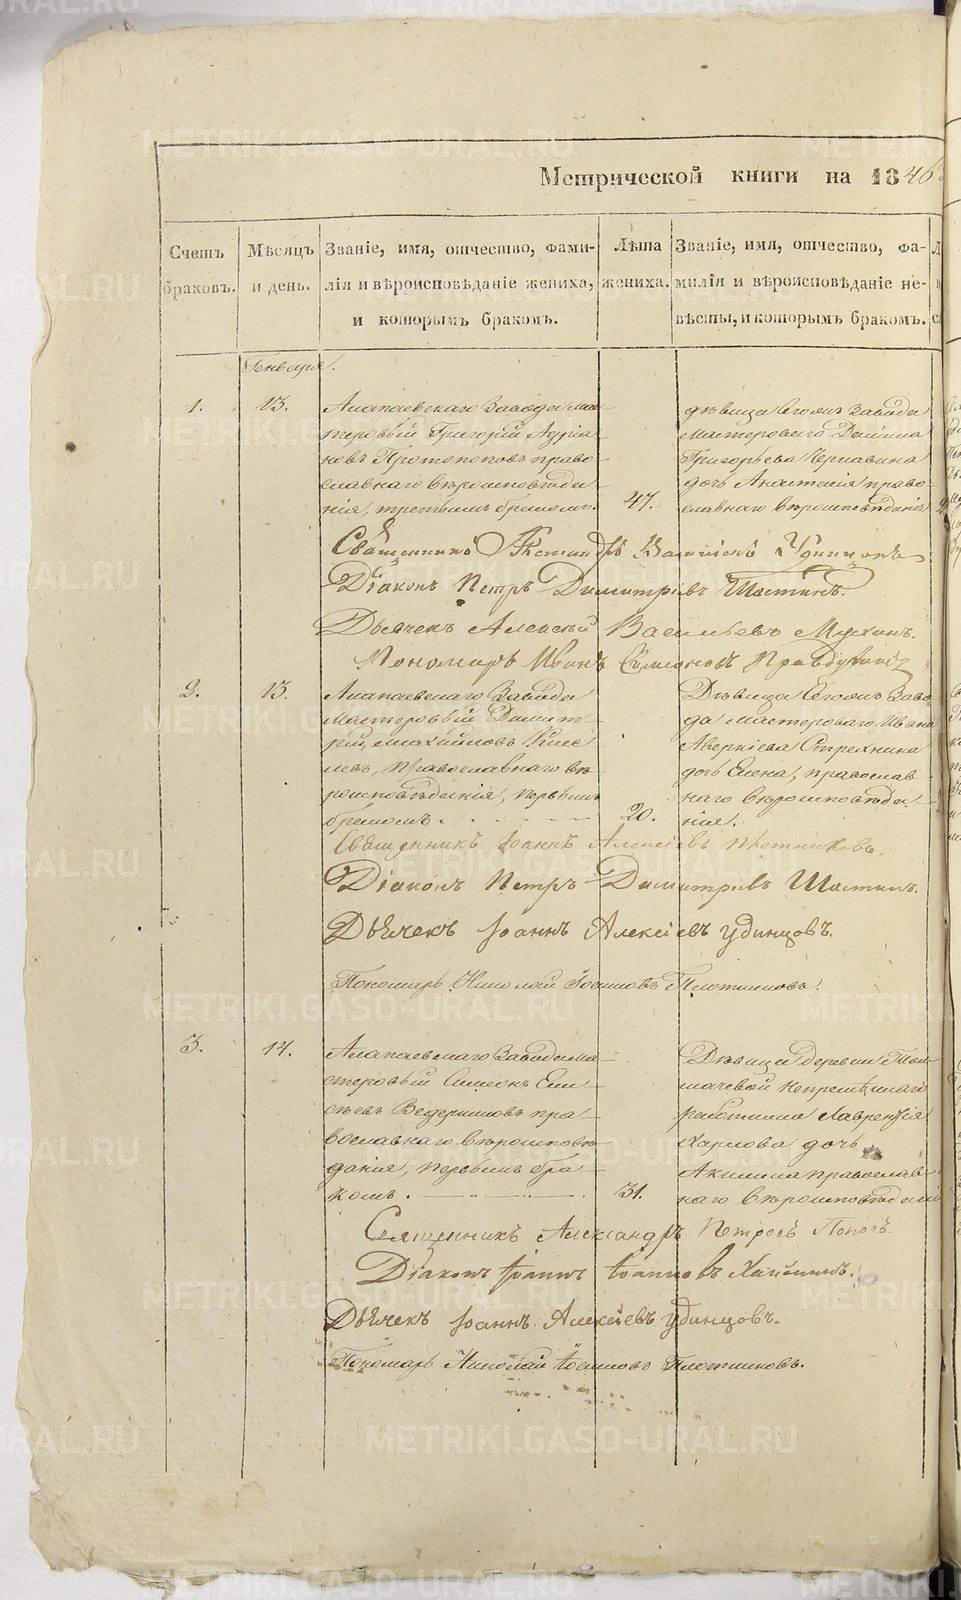 Метрической книги на 1846
Счетъ браковъ.
Мѣсяцъ и день.
Званіе, имя, отчество, фами-
лія и вѣроисповѣданіе жениха,
и которымъ бракомъ.
Лѣта жениха.
Званіе, имя, отчество, фа-
милія и вѣроисповѣданіе не-
вѣсты, и которымъ бракомъ.
Генваря.
1.
13.
Алапаевскаго завода ма-
стеровый Григорій Адріа-
новъ Протопоповъ право-
славнаго вѣроисповѣда-
нія, третьимъ бракомъ.
47.
дѣвица Сегожъ завода
мастероваго Даніила
Григорьева Чернавина
дочь Анастасія право-
славнаго вѣроисповѣданія
Діаконъ Петръ Димитріевъ Шастинъ.
Дьячекъ Алексѣй Васильевъ Мухинъ.
Пономарь Иванъ Симеоновъ
2.
13.
Алапаевскаго завода
мастеровый Димит-
рій
левъ, православнаго вѣ-
роисповѣданія, первымъ
бракомъ.
20.
Дѣвица Сегожъ заво-
да мастероваго Ивана
Аверкіева Стряхнина
дочь Елена, православ-
наго вѣроисповѣда-
нія.
Священникъ Іоаннъ Алексіевъ Плотниковъ.
Діаконъ Петръ Димитріевъ Шастинъ.
Дьячекъ Іоаннъ Алексіевъ Удинцовъ.
Пономарь Николай Іоанновъ Плотниковъ.
3.
14.
Алапаевскаго завода ма-
стеровый Симеонъ Ели-
сѣевъ Ведерниковъ пра-
вославнаго вѣроисповѣ-
данія, первымъ бра-
комъ.
31.
Дѣвица деревни Тол-
мачевой непремѣннаго
работника Лаврентія
Харлова дочь
Акилина православ-
наго вѣроисповѣданія
Священникъ Александръ Петровъ Поповъ.
Діаконъ Іоаннъ Іоанновъ
Дьячекъ Іоаннъ Алексіевъ Удинцовъ.
Пономарь Николай Іоанновъ Плотниковъ.
METRIKI.GASO-URAL.RU